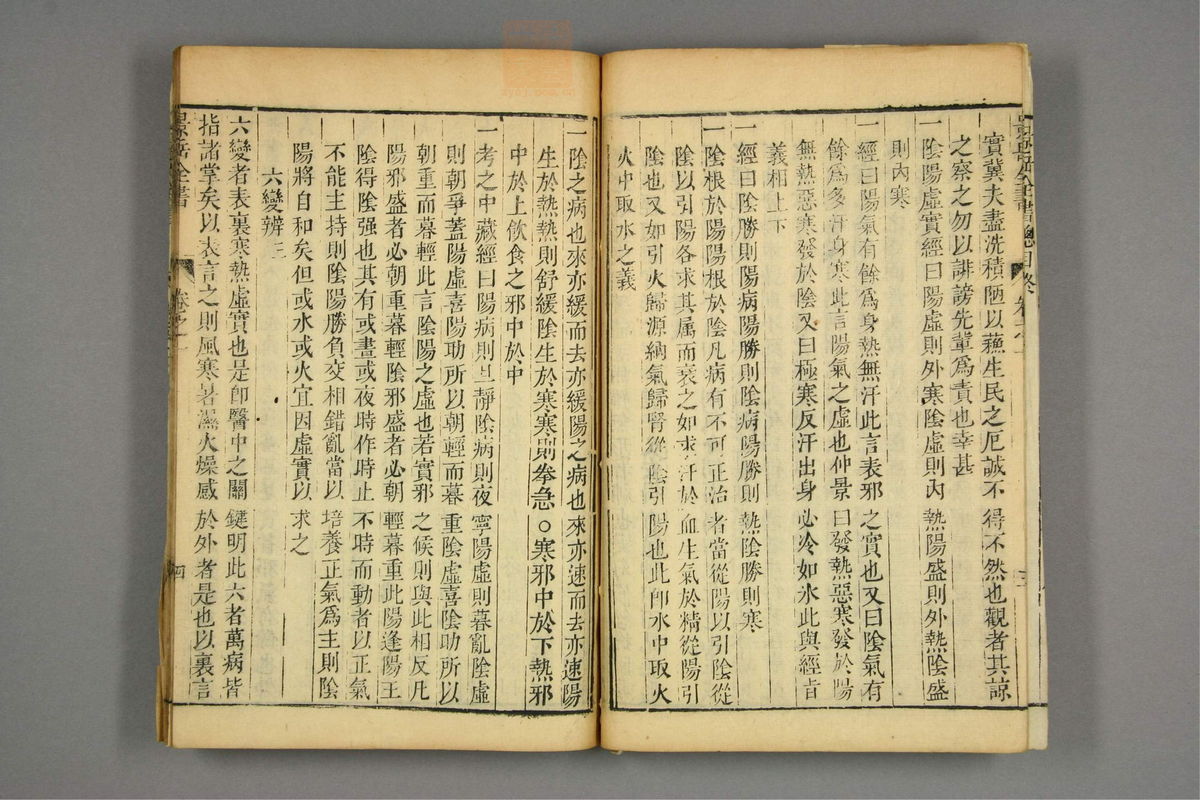 景岳全書總目終 卷之一 三
實冀夫盡洗積陋以蘓生民之厄誠不得不然也觀者其諒
之察之勿以誹謗先輩爲責也幸甚
一陰陽虛實經曰陽虛則外寒陰虛則內熱陽盛則外熱陰盛
則內寒
一經曰陽氣有餘爲身熱無汗此言表邪之實也又曰陰氣有
餘爲多汗身寒此言陽氣之虛也仲景曰發熱惡寒發於陽
無熱惡寒發於陰又曰極寒反汗出身必冷如氷此與經旨
義相上下
一經曰陰勝則陽病陽勝則陰病陽勝則熱陰勝則寒
一陰根於陽陽根於陰凡病有不可正治者當從陽以引陰從
陰以引陽各求其属而衰之如求汗於血生氣於精從陽引
陰也又如引火歸源納氣歸腎從陰引陽也此卽水中取火
火中取水之義
一陰之病也來亦緩而去亦緩陽之病也來亦速而去亦速陽
生於熱熱則舒緩陰生於寒寒則拳急〇寒邪中於下熱邪
中於上飲食之邪中於中
一考之中藏經曰陽病則旦靜陰病則夜寧陽虛則暮亂陰虛
則朝爭蓋陽虛喜陽助所以朝輕而暮重陰虛喜陰助所以
朝重而暮輕此言陰陽之虛也若實邪之候則與此相反凡
陽邪盛者必朝重暮輕陰邪盛者必朝輕暮重此陽逢陽王
陰得陰强也其有或晝或夜時作時止不時而動者以正氣
不能主持則陰陽勝負交相錯亂當以培養正氣爲主則陰
陽將自和矣但或水或火宜因虛實以求之
六變辨三
六變者表裏寒熱虛實也是卽醫中之關鍵明此六者萬病皆
指諸掌矣以表言之則風寒暑濕火燥感於外者是也以裏言
景岳全書 卷之一 四